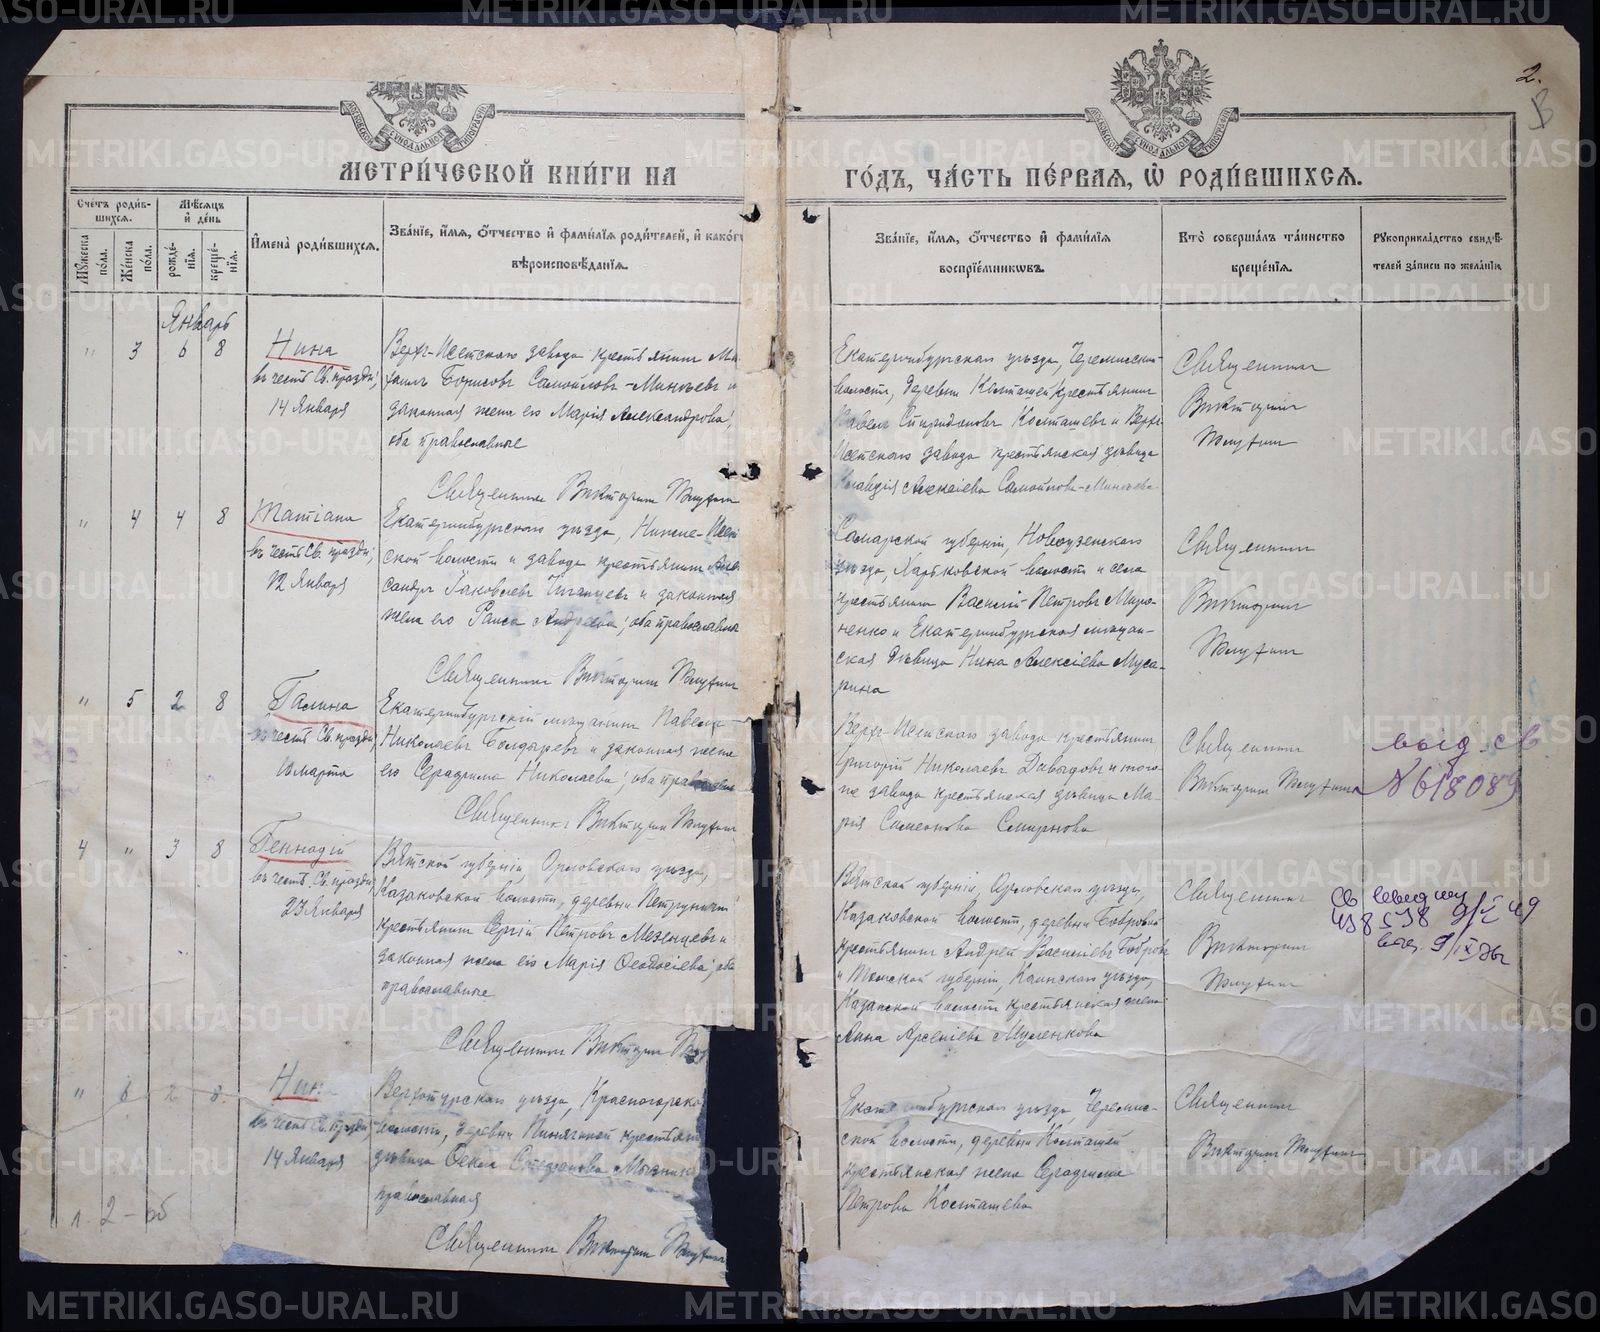 2.
МЕТРИЧЕСКОЙ КНИГИ НА
ГОДЪ, ЧАСТЬ ПЕРВАЯ, Ѡ РОДИВШИХСЯ.
Счетъ родив-
шихся.
Мѣсяцъ
и день
Мужеска
пола.
Женска
пола.
рожде-
нія.
креще-
нія.
Имена родившихся.
Званіе, имя, отчество и фамилія родителей, и како
вѣроисповѣданія.
Званіе, имя, отчество и фамилія
воспріемниковъ.
Кто совершалъ таинство
крещенія.
Рукоприкладство свидѣ-
телей записи по желанію
Январь
" 3 6 8
Нина
въ честь Св. празди;
14 Января
Верх-Исетскаго завода крестьянинъ Ми-
хаилъ Борисовъ Самойловъ-Минѣевъ и
законная жена его Марія Александрова,
оба православные
Священникъ Викторинъ
Екатеринбургскаго уѣзда, Черемисск-
волости, деревни Колташей крестьянинъ
Павелъ Спиридоновъ Колташевъ и Верх-
Исетскаго завода крестьянская дѣвица
Клавдія Алексіева Самойлова-Минѣева
Священникъ
Викторинъ
" 4 4 8
Татіана
въ честь Св. празди;
12 Января
Екатеринбургскаго уѣзда, Нижне-Исет
ской волости и завода крестьянинъ Алек
сандръ Іаковлевъ и законная
жена его Раиса Андреева; оба православные
Священникъ Викторинъ
Самарской губерніи, Новоузенскаго
уѣзда, Харьковской волости и села
крестьянинъ Василій Петровъ Миро-
ненко и Екатеринбургская мѣщан-
ская дѣвица Нина Алексіева Муса-
рина
Священникъ
Викторинъ
" 5 2 8
Галина
въ честь Св. празди;
марта
Екатеринбургскій мѣщанинъ Павелъ
Николаевъ Болдыревъ и законная жена
его Серафима Николаева; оба православные
Священникъ Викторинъ
Верх-Исетскаго завода крестьянинъ
Григорій Николаевъ Давыдовъ и того-
же завода крестьянская дѣвица Ма-
рія Симеонова Смирнова
Священникъ
Викторинъ
выд. св
№618089
4 " 3 8
Геннадій
въ честь Св. празди;
23 Января
Вятской губерніи, Орловскаго уѣзда,
Казаковской волости, деревни
крестьянинъ Сергій Петровъ Мезенцевъ и
законная жена его Марія Ѳеодосіева; оба
православные
Священникъ Викторинъ
Вятской губерніи, Орловскаго уѣзда,
Казаковской волости, деревни Бобровой
крестьянинъ Андрей Василіевъ Бобровъ
и Томской губерніи, Каинскаго уѣзда,
Казанской волости крестьянская жена
Анна Арсеніева Мусенкова
Священникъ
Викторинъ
" 6 2 8
Нин
въ честь Св. празди;
14 Января
Верхотурскаго уѣзда, Красногорско
волости, деревни крестьян
дѣвица Ѳекла Стефанова
православная
Священникъ Викторинъ
Екате нбургскаго уѣзда, Черемис-
ской волости, деревни Колташей
крестьянская жена Серафима
Петрова Колташева
Священникъ
Викторинъ
л. 2-об
METRIKI.GASO-URAL.RU